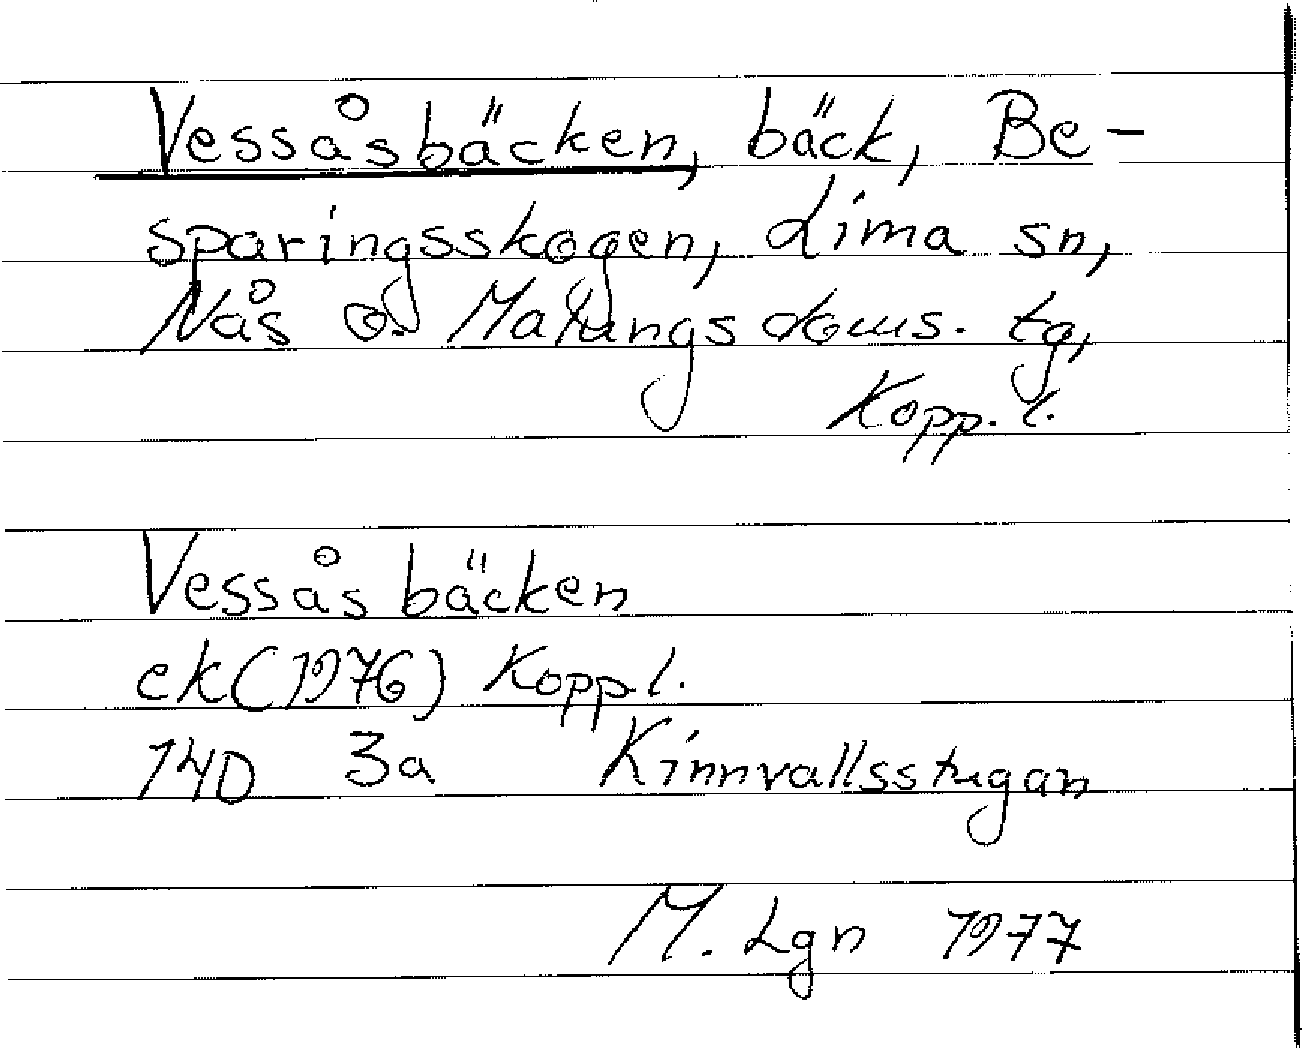 Vessåsbäcken, bäck, Be-
sparingsskogen, Lima sn,
Nås o. Malungs doms. tg,
Kopp. l.
Vessåsbäcken
ek (1976) Kopp l.
14D 3a Kinnvallsstugan
M. Lgn 1977